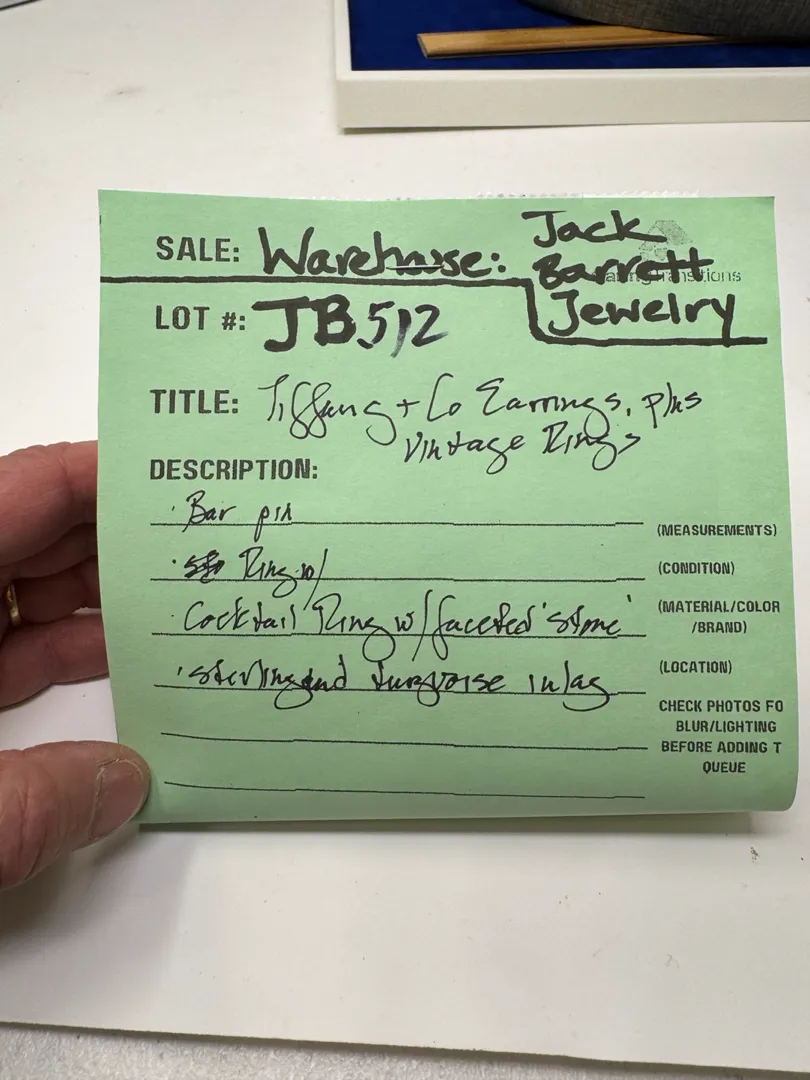 SALE: Warehouse: Jack
Barrett
Jewelry
LOT #: JB512
TITLE: Tiffany + Co Earrings, plus
Vintage Rings
DESCRIPTION:
· Bar pin
(MEASUREMENTS)
· Ring w/
(CONDITION)
· Cocktail Ring w/ faceted 'stone'
(MATERIAL/COLOR
/BRAND)
· sterling and turquoise inlay
(LOCATION)
CHECK PHOTOS FO
BLUR/LIGHTING
BEFORE ADDING T
QUEUE